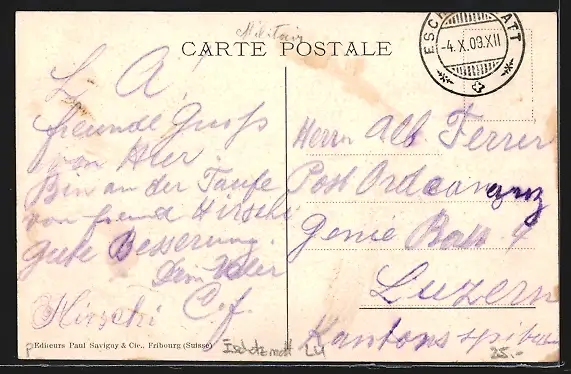 Militair
CARTE POSTALE
ESCH ATT
-4.X.09.XII
L. A.!
freundl Gruss
von Hier
Bin an der Taufe
von freund Hirschi
gute Besserung.
Dein
Hirschi
Herrn Alb. Ferrer
Post Ordonanz
Genie Batt 4
Luzern
Kantonsspital
Editeurs Paul Savigny & Cie., Fribourg (Suisse)
LU
25.-